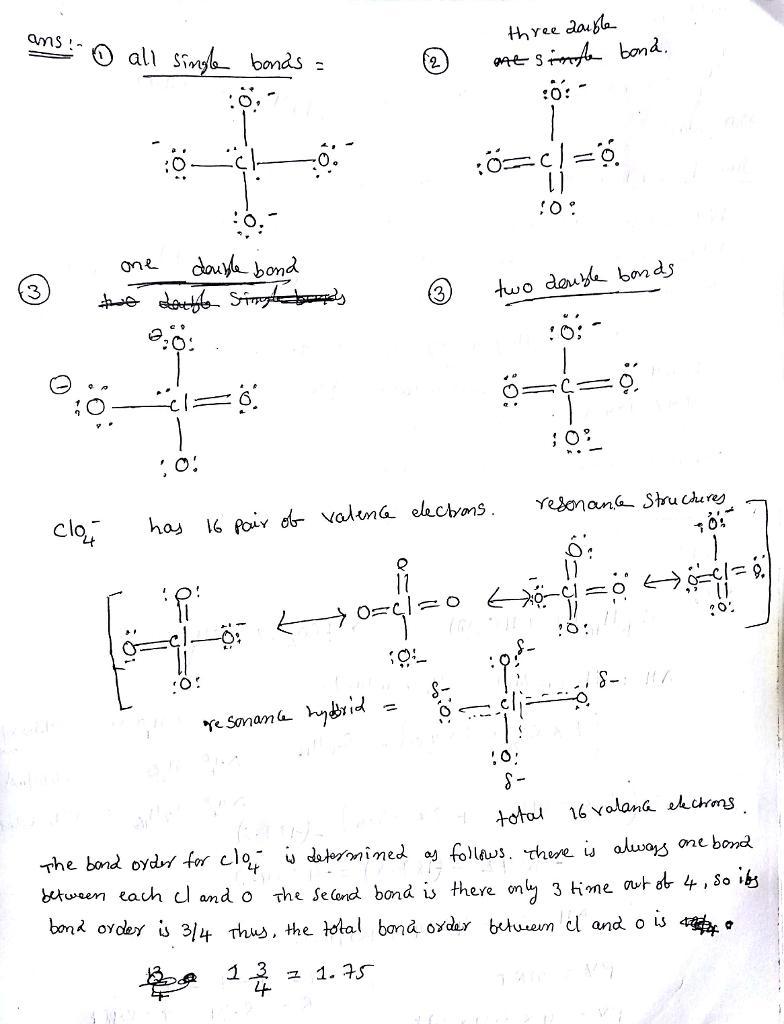 ans :- ① all single bonds =
② three double
one single bond.
:Ö: -
- :Ö — Cl — Ö: -
:O: -
:Ö: -
:Ö = Cl = Ö:
:O:
③ one double bond
two double single bonds
③ two double bonds
⊖ :Ö:
⊖ :Ö — Cl = Ö:
:O:
:Ö: -
Ö = C = Ö:
:O: -
ClO4- has 16 pair of valence electrons. resonance structures
:O: O Ö: :Ö: -
Ö = Cl — Ö: - ⟷ O=Cl=O ⟷ - :Ö-Cl=Ö ⟷ Ö=Cl=O:
:O: :O: - :O: :O:
resonance hybrid = :O: δ-
δ- O Cl O δ-
:O:
δ-
total 16 valance electrons.
The bond order for clO4- is determined as follows. There is always one bond
between each cl and o The second bond is there only 3 time out of 4, so its
bond order is 3/4 Thus, the total bond order between cl and o is
1 3/4 = 1.75